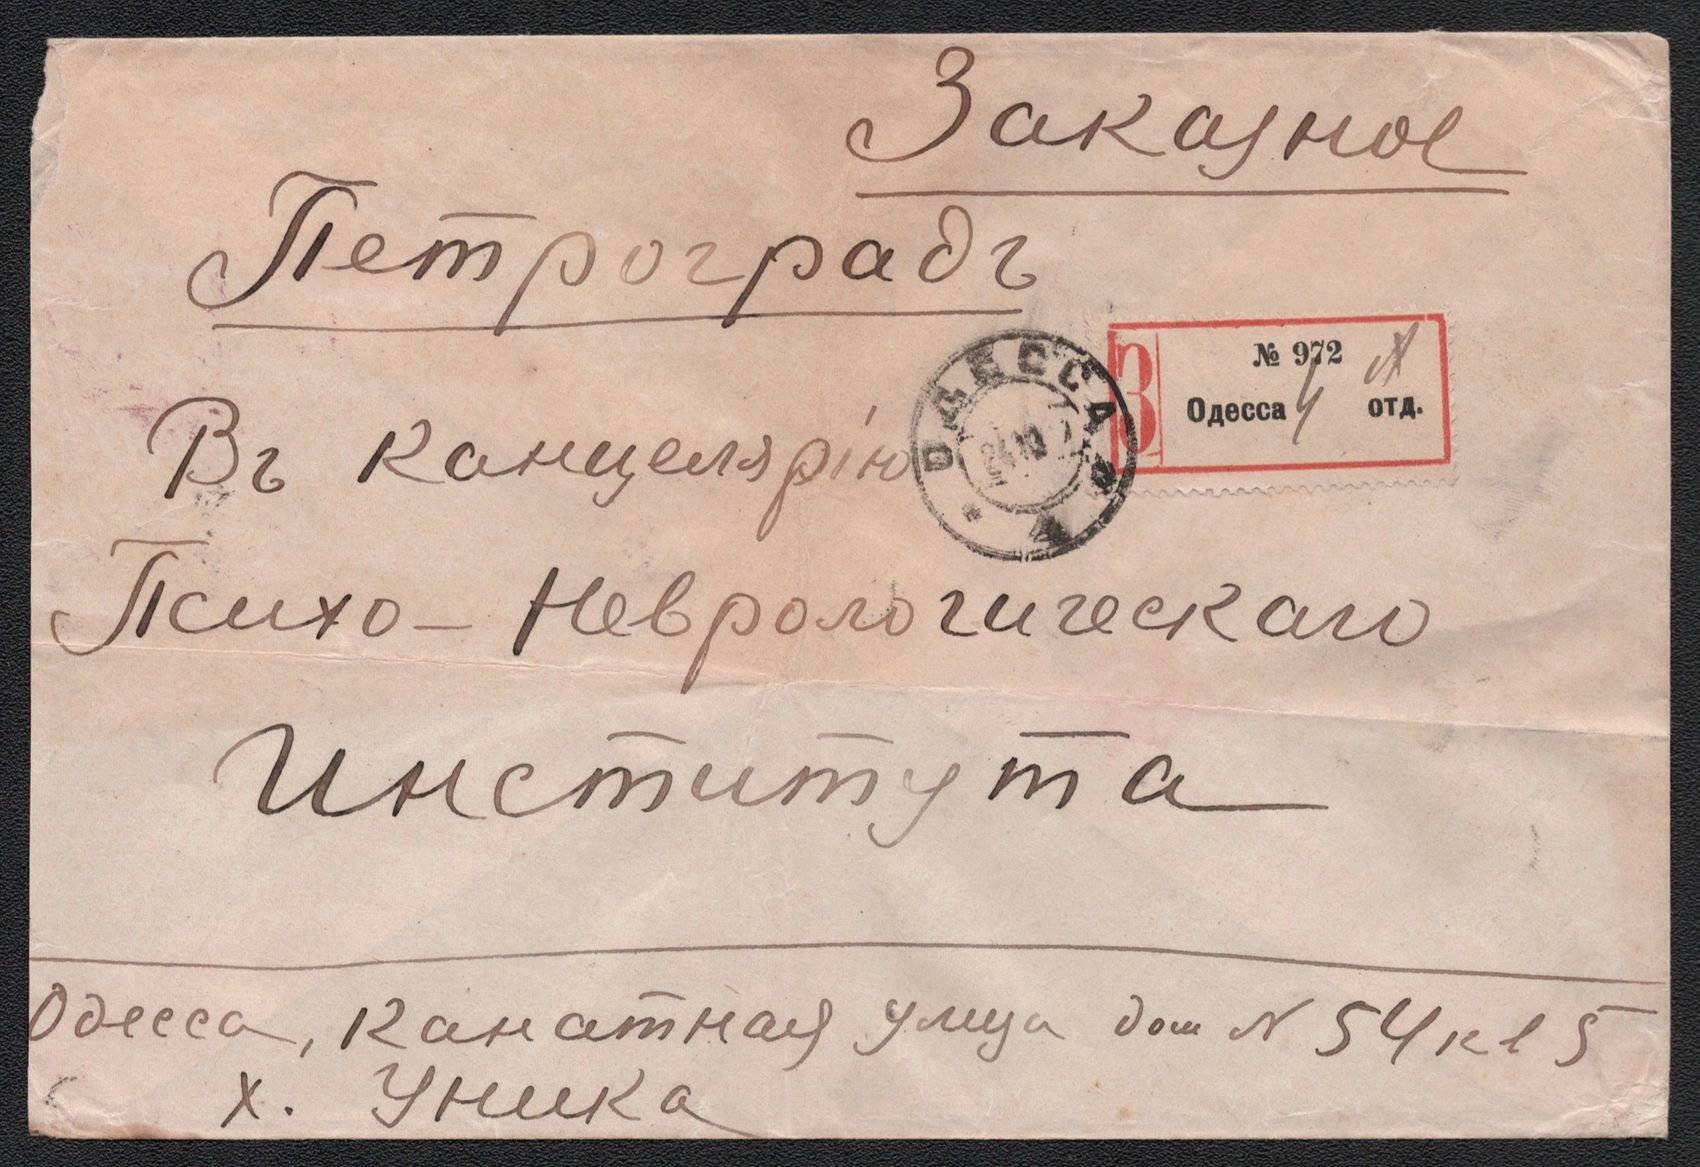 Заказное
Петроградъ
№ 972
З Одесса 4 отд.
ОДЕССА
4
Въ канцелярію
Психо-Неврологическаго
Института
Одесса, Канатная улица дом N 54 кв 5
Х. Уника